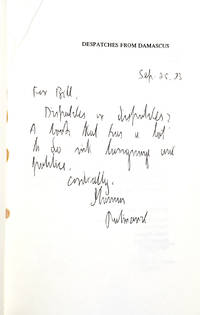 DESPATCHES FROM DAMASCUS
Sep. 25. 93
For Bill,
Dispatches or despatches?
A book that has a lot
to do with language and
politics.
Cordially,